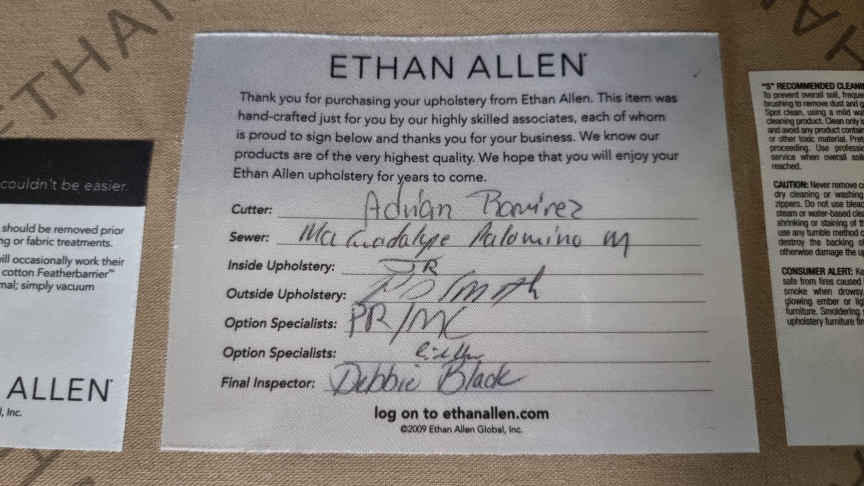 ETHAN ALLEN
Thank you for purchasing your upholstery from Ethan Allen. This item was
hand-crafted just for you by our highly skilled associates, each of whom
is proud to sign below and thanks you for your business. We know our
products are of the very highest quality. We hope that you will enjoy your
Ethan Allen upholstery for years to come.
Cutter: Adrian Ramirez
Sewer: Ma Guadalupe Palomino M
Inside Upholstery: JR
Outside Upholstery: Smith
Option Specialists: PR/MC
Option Specialists:
Final Inspector: Debbie Black
log on to ethanallen.com
©2009 Ethan Allen Global, Inc.
couldn't be easier.
should be removed prior
ng or fabric treatments.
will occasionally work their
cotton Featherbarrier™
mal; simply vacuum
ALLEN
, Inc.
"S" RECOMMENDED CLEANI
To prevent overall soil, freque
brushing to remove dust and g
Spot clean, using a mild wa
cleaning product. Clean only i
and avoid any product conta
or other toxic material. Pret
proceeding. Use professio
service when overall soil
reached.
CAUTION: Never remove c
dry cleaning or washing
zippers. Do not use bleac
steam or water-based cle
shrinking or staining of th
use any tumble method c
destroy the backing o
otherwise damage the up
CONSUMER ALERT: Ke
safe from fires caused
smoke when drowsy.
glowing ember or lig
furniture. Smoldering
upholstery furniture fir
ETHAN